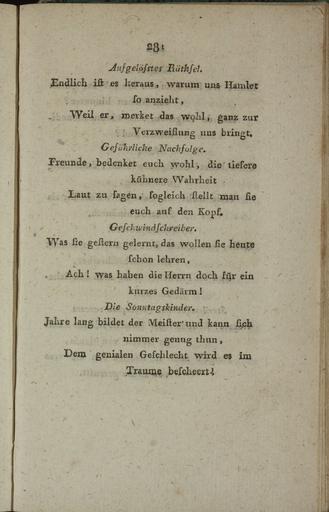 231
Aufgelöſtes Räthſel.
Endlich iſt es heraus, warum uns Hamlet
ſo anzieht,
Weil er, merket das wohl, ganz zur
Verzweiflung uns bringt.
Gefährliche Nachfolge.
Freunde, bedenket euch wohl, die tiefere
kühnere Wahrheit
Laut zu ſagen, ſogleich ſtellt man ſie
euch auf den Kopf.
Geſchwindſchreiber.
Was ſie geſtern gelernt, das wollen ſie heute
ſchon lehren,
Ach! was haben die Herrn doch für ein
kurzes Gedärm!
Die Sonntagskinder.
Jahre lang bildet der Meiſter und kann ſich
nimmer genug thun,
Dem genialen Geſchlecht wird es im
Traume beſcheert!